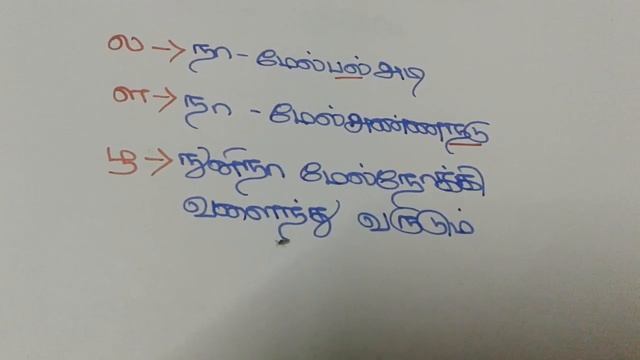 ல → நா - மேல்பல்அடி
ள → நா - மேல்அண்ணநடு
ழ → நுனிநா மேல்நோக்கி
வளைந்து வருடும்